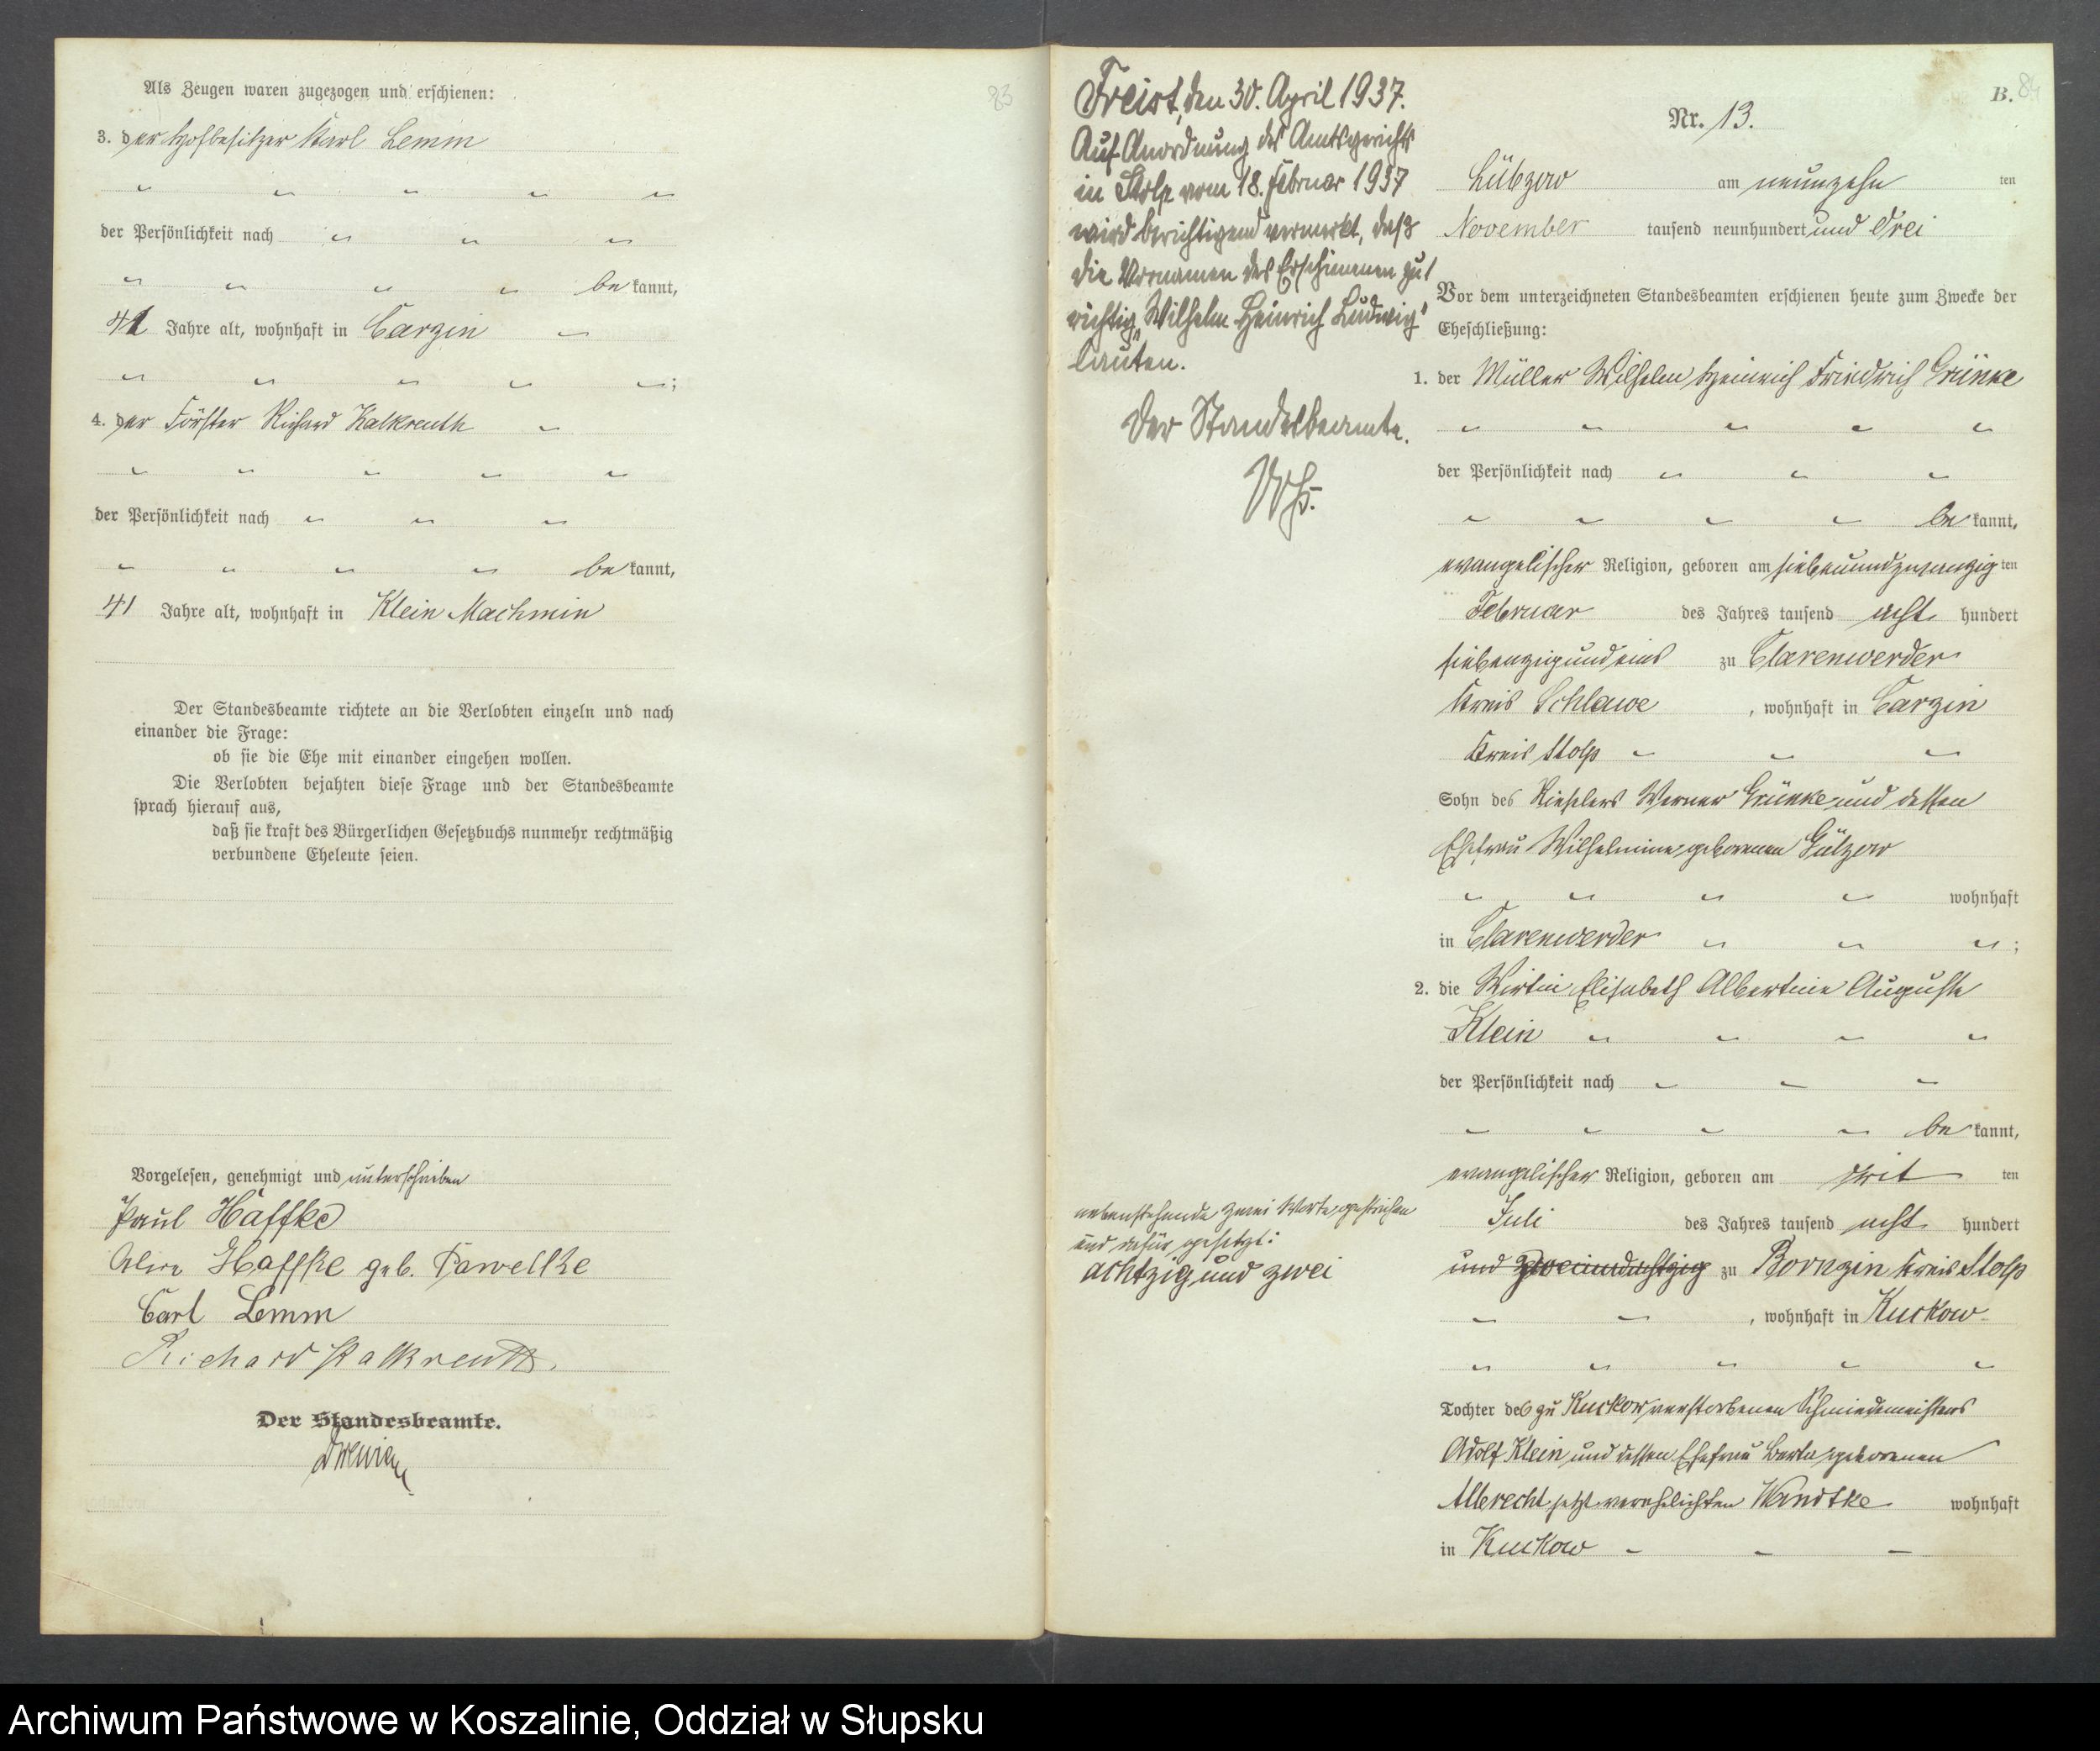 Als Zeugen waren zugezogen und erschienen:
3. der Hofbesitzer Karl Lemm
der Persönlichkeit nach
be kannt,
41 Jahre alt, wohnhaft in Carzin
4. der Förster Richard Kalkreuth
der Persönlichkeit nach
be kannt,
41 Jahre alt, wohnhaft in Klein Machmin
Der Standesbeamte richtete an die Verlobten einzeln und nach
einander die Frage:
ob sie die Ehe mit einander eingehen wollen.
Die Verlobten bejahten diese Frage und der Standesbeamte
sprach hierauf aus,
daß sie kraft des Bürgerlichen Gesetzbuchs nunmehr rechtmäßig
verbundene Eheleute seien.
Vorgelesen, genehmigt und unterschrieben
Paul Haffke
Haffke geb. Pawelke
Carl Lemm
Richard Kalkreuth.
Der Standesbeamte.
83
Freist, den 30. April 1937.
Auf Anordnung des Amtsgerichts
in Stolp vom 18. Februar 1937
wird berichtigend vermerkt, daß
die Vornamen des Erschienenen zu 1
richtig „Wilhelm Heinrich Ludwig"
lauten.
Der Standesbeamte.
nebenstehende zwei Worte gestrichen
und dafür gesetzt:
achtzig und zwei
B. 84
Nr. 13.
Lübzow am neunzehn ten
November tausend neunhundert und drei
Vor dem unterzeichneten Standesbeamten erschienen heute zum Zwecke der
Eheschließung:
1. der Müller Wilhelm Heinrich Friedrich Grünke
der Persönlichkeit nach
be kannt,
evangelischer Religion, geboren am siebenundzwanzig ten
Februar des Jahres tausend acht hundert
siebenzig und eins zu Clarenwerder
Kreis Schlawe, wohnhaft in Carzin
Kreis Stolp
Sohn des Rieslers Werner Grünke und dessen
Ehefrau Wilhelmine, geborenen Gülzow
wohnhaft
in Clarenwerder;
2. die Wirtin Elisabeth Albertine Auguste
Klein
der Persönlichkeit nach
be kannt,
evangelischer Religion, geboren am drit ten
Juli des Jahres tausend acht hundert
und zweiundachtzig zu Bornzin Kreis Stolp
, wohnhaft in Kuckow
Tochter des zu Kuckow verstorbenen Schmiedemeisters
Adolf Klein und dessen Ehefrau Berta geborenen
Albrecht jetzt verehelichten Wandtke wohnhaft
in Kuckow
Archiwum Państwowe w Koszalinie, Oddział w Słupsku